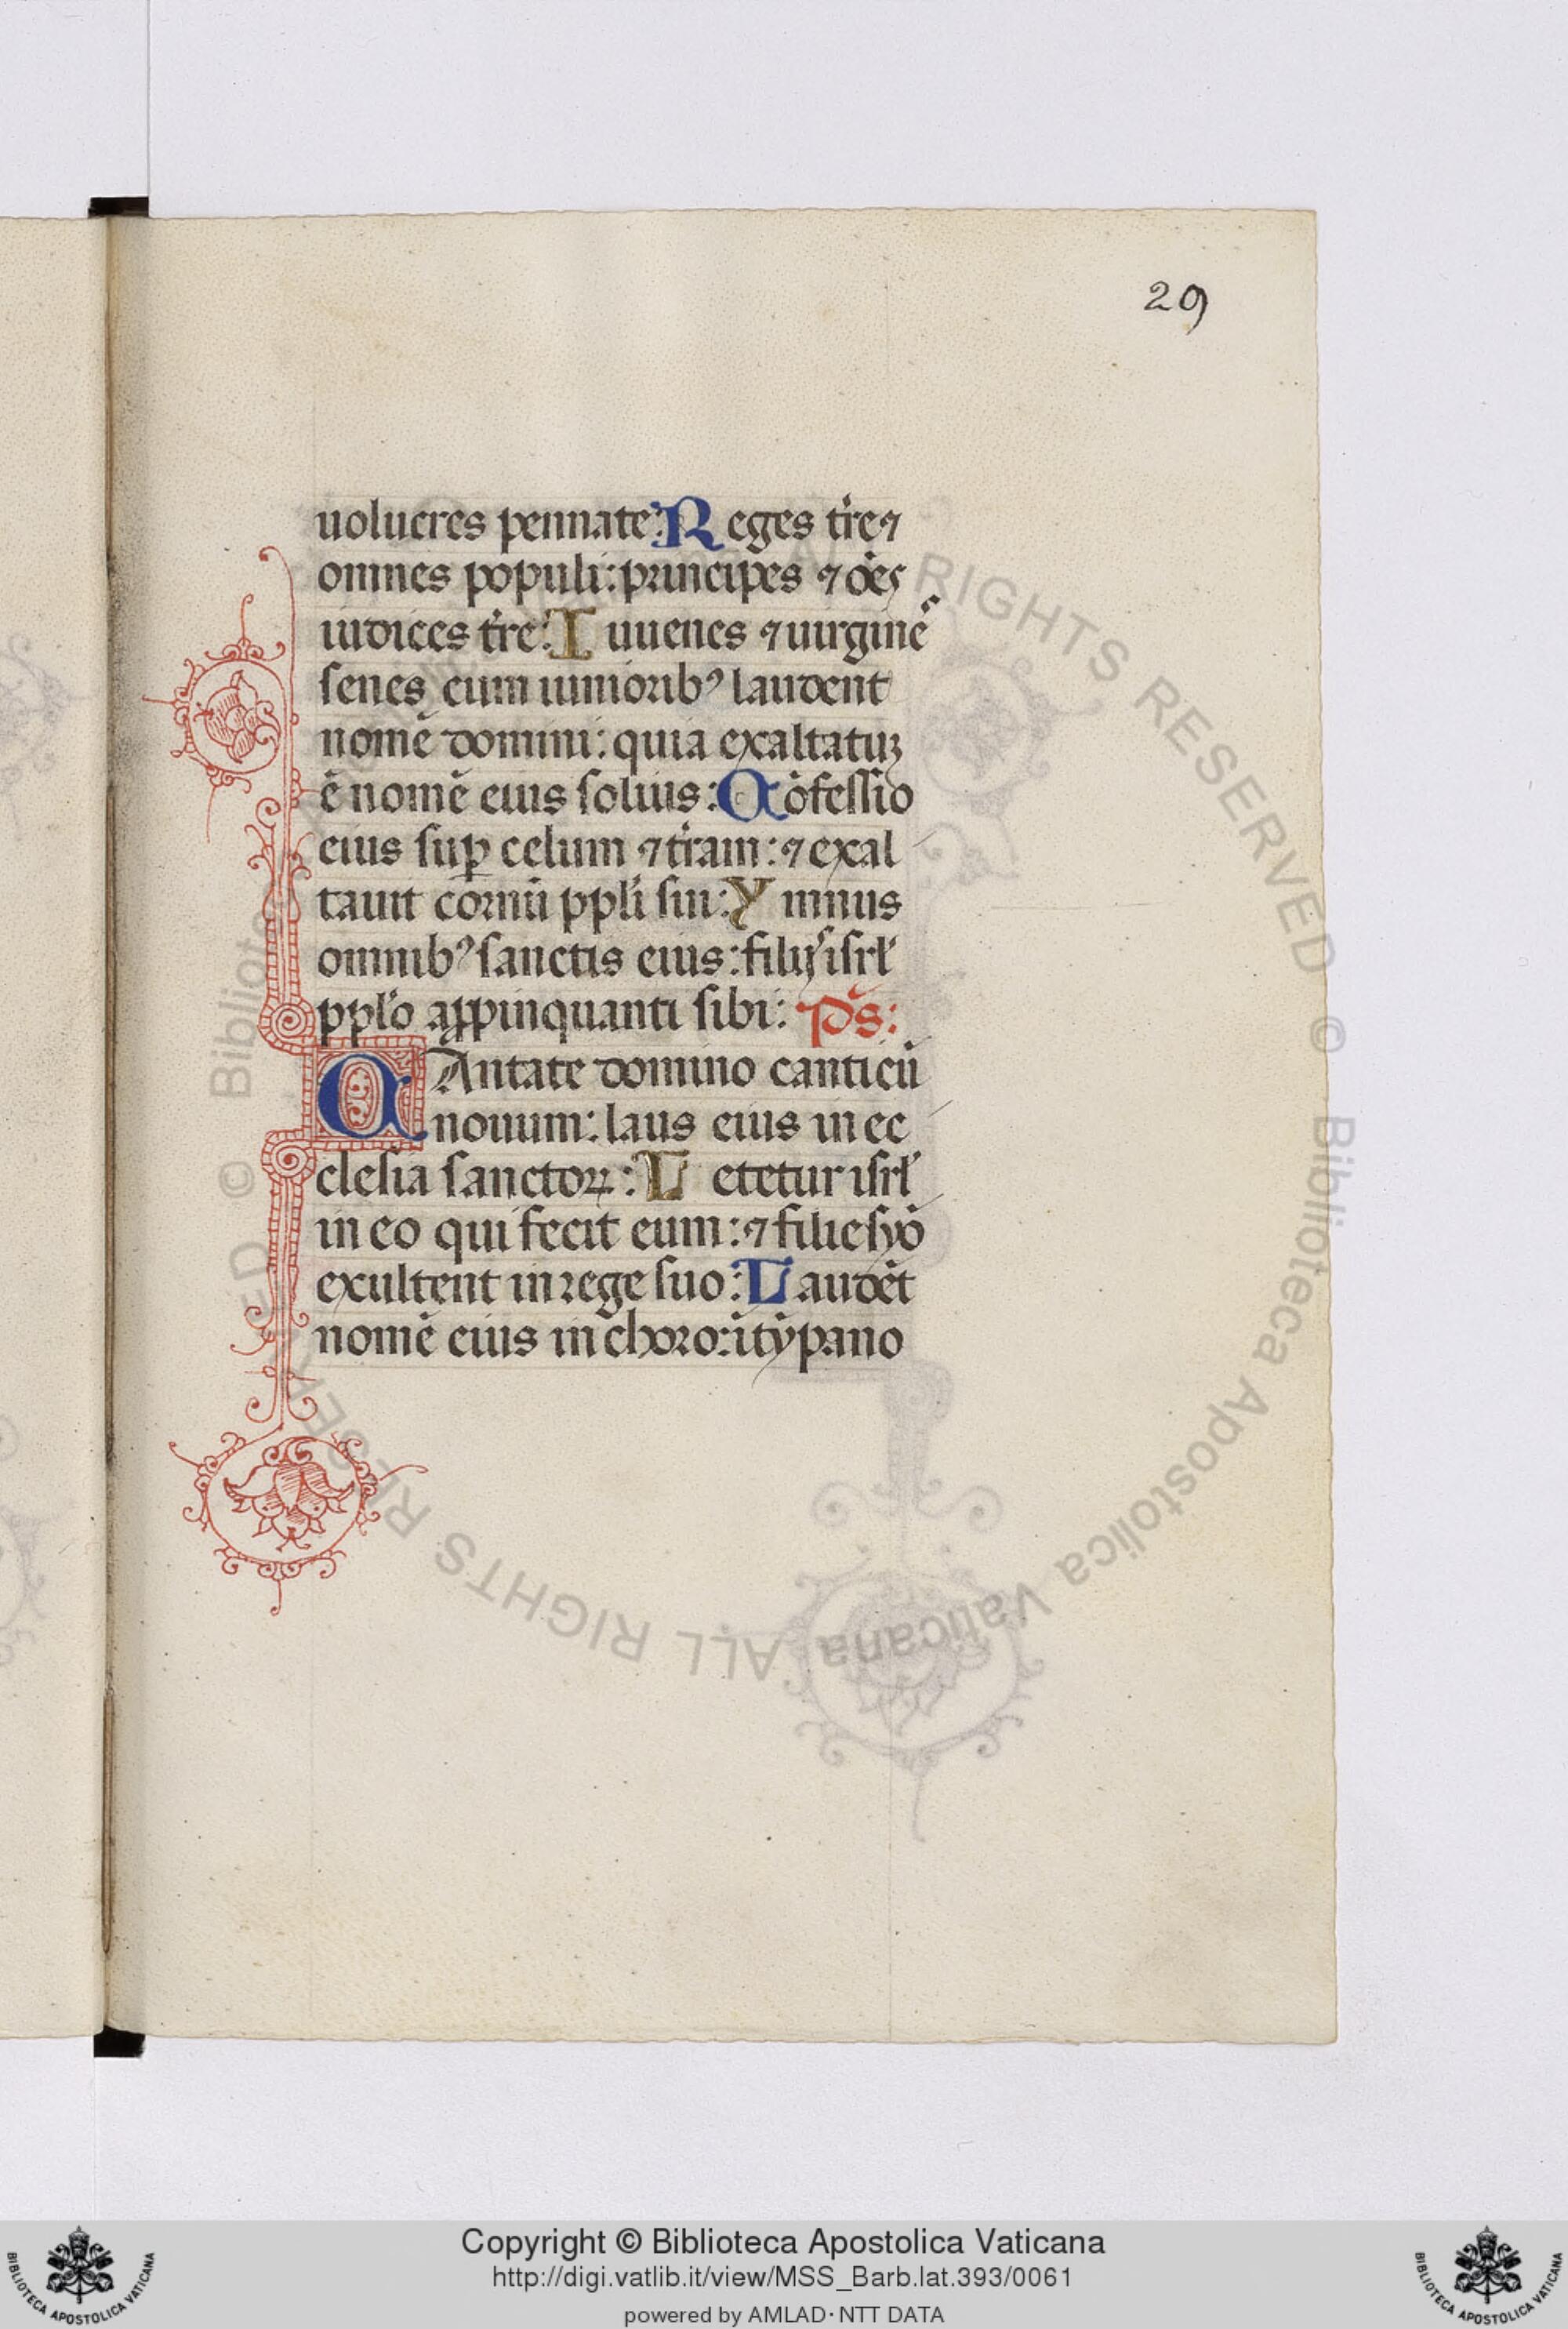 29
uolucres pennate: Reges tr̄e ⁊
omnes populi: principes ⁊ oēs
iudices tr̄e: Iuuenes ⁊ uirgines
senes cum iuniorib⁹ laudent
nomē domini: quia exaltatuʒ
ē nomē eius solius: Cōfessio
eius suꝑ celum ⁊ tr̄am: ⁊ exal
tauit cornū ppl̄i sui: Ymnus
omnib⁹ sanctis eius: filijs isrl̄
ppl̄o aꝓpinquanti sibi: Ps̄:
CAntate domino canticū
nouum: laus eius in ec
clesia sanctoꝝ: Letetur isrl̄
in eo qui fecit eum: ⁊ filie syō
exultent in rege suo: Laudēt
nomē eius in choro: ī tȳpano
© Biblioteca Apostolica Vaticana ALL RIGHTS RESERVED
Copyright © Biblioteca Apostolica Vaticana
http://digi.vatlib.it/view/MSS_Barb.lat.393/0061
powered by AMLAD·NTT DATA
BIBLIOTECA APOSTOLICA VATICANA
BIBLIOTECA APOSTOLICA VATICANA